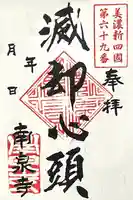 美濃新四国
第六十九番
奉拝
滅却心頭
年
月
日
南泉寺